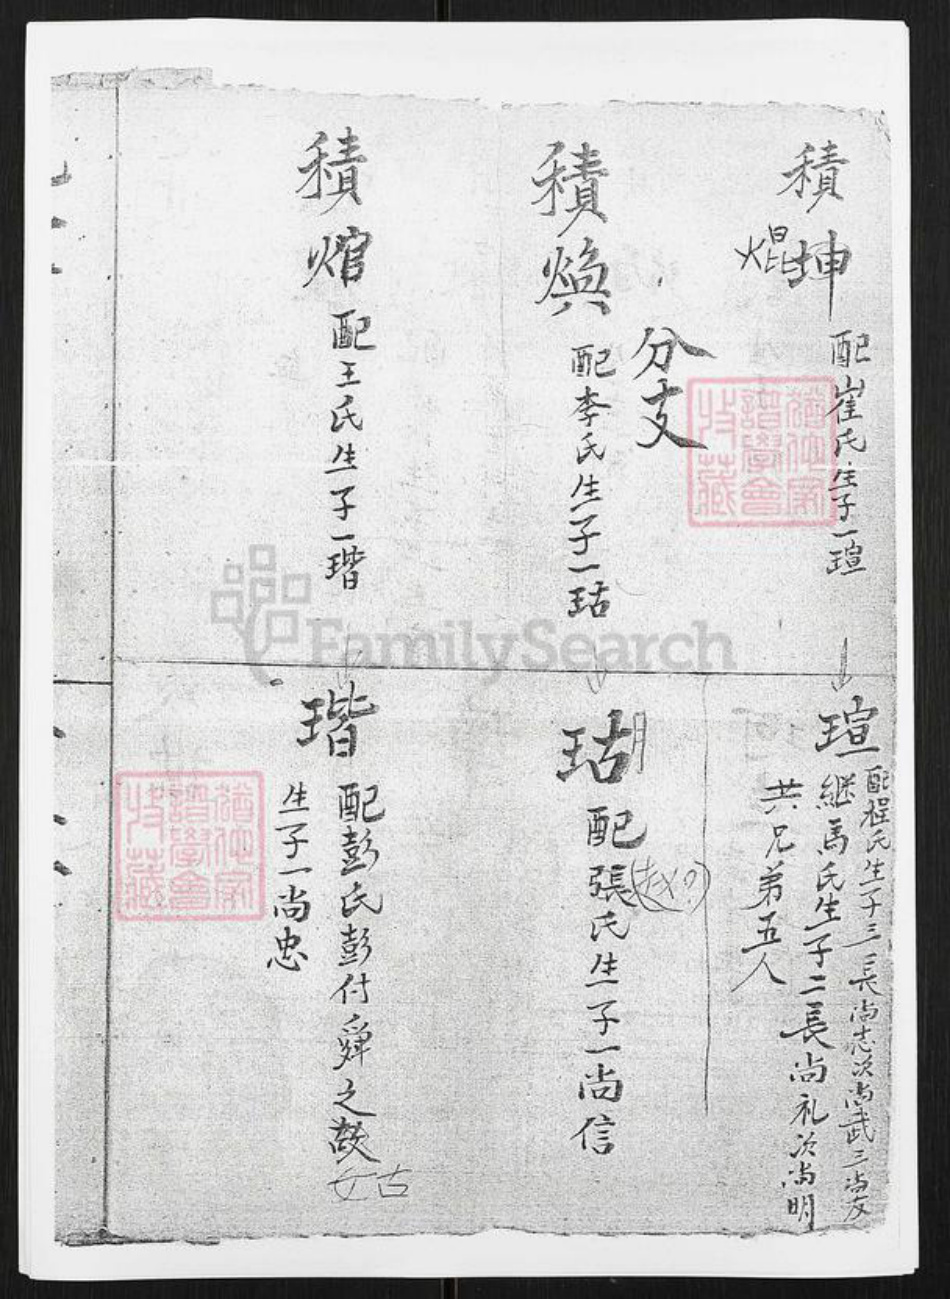 積坤
焜
配崔氏生子一瑄
分支
積煥
配李氏生子一㺬
積熍
配王氏生子一瑎
瑄
配程氏生子三長尚志次尚武三尚友
継馬氏生子二長尚礼次尚明
共兄弟五人
瑚
配張氏生子一尚信
(赵?)
瑎
配彭氏彭付舜之
姑
生子一尚忠
FamilySearch
譜學會
收藏
譜學會
收藏